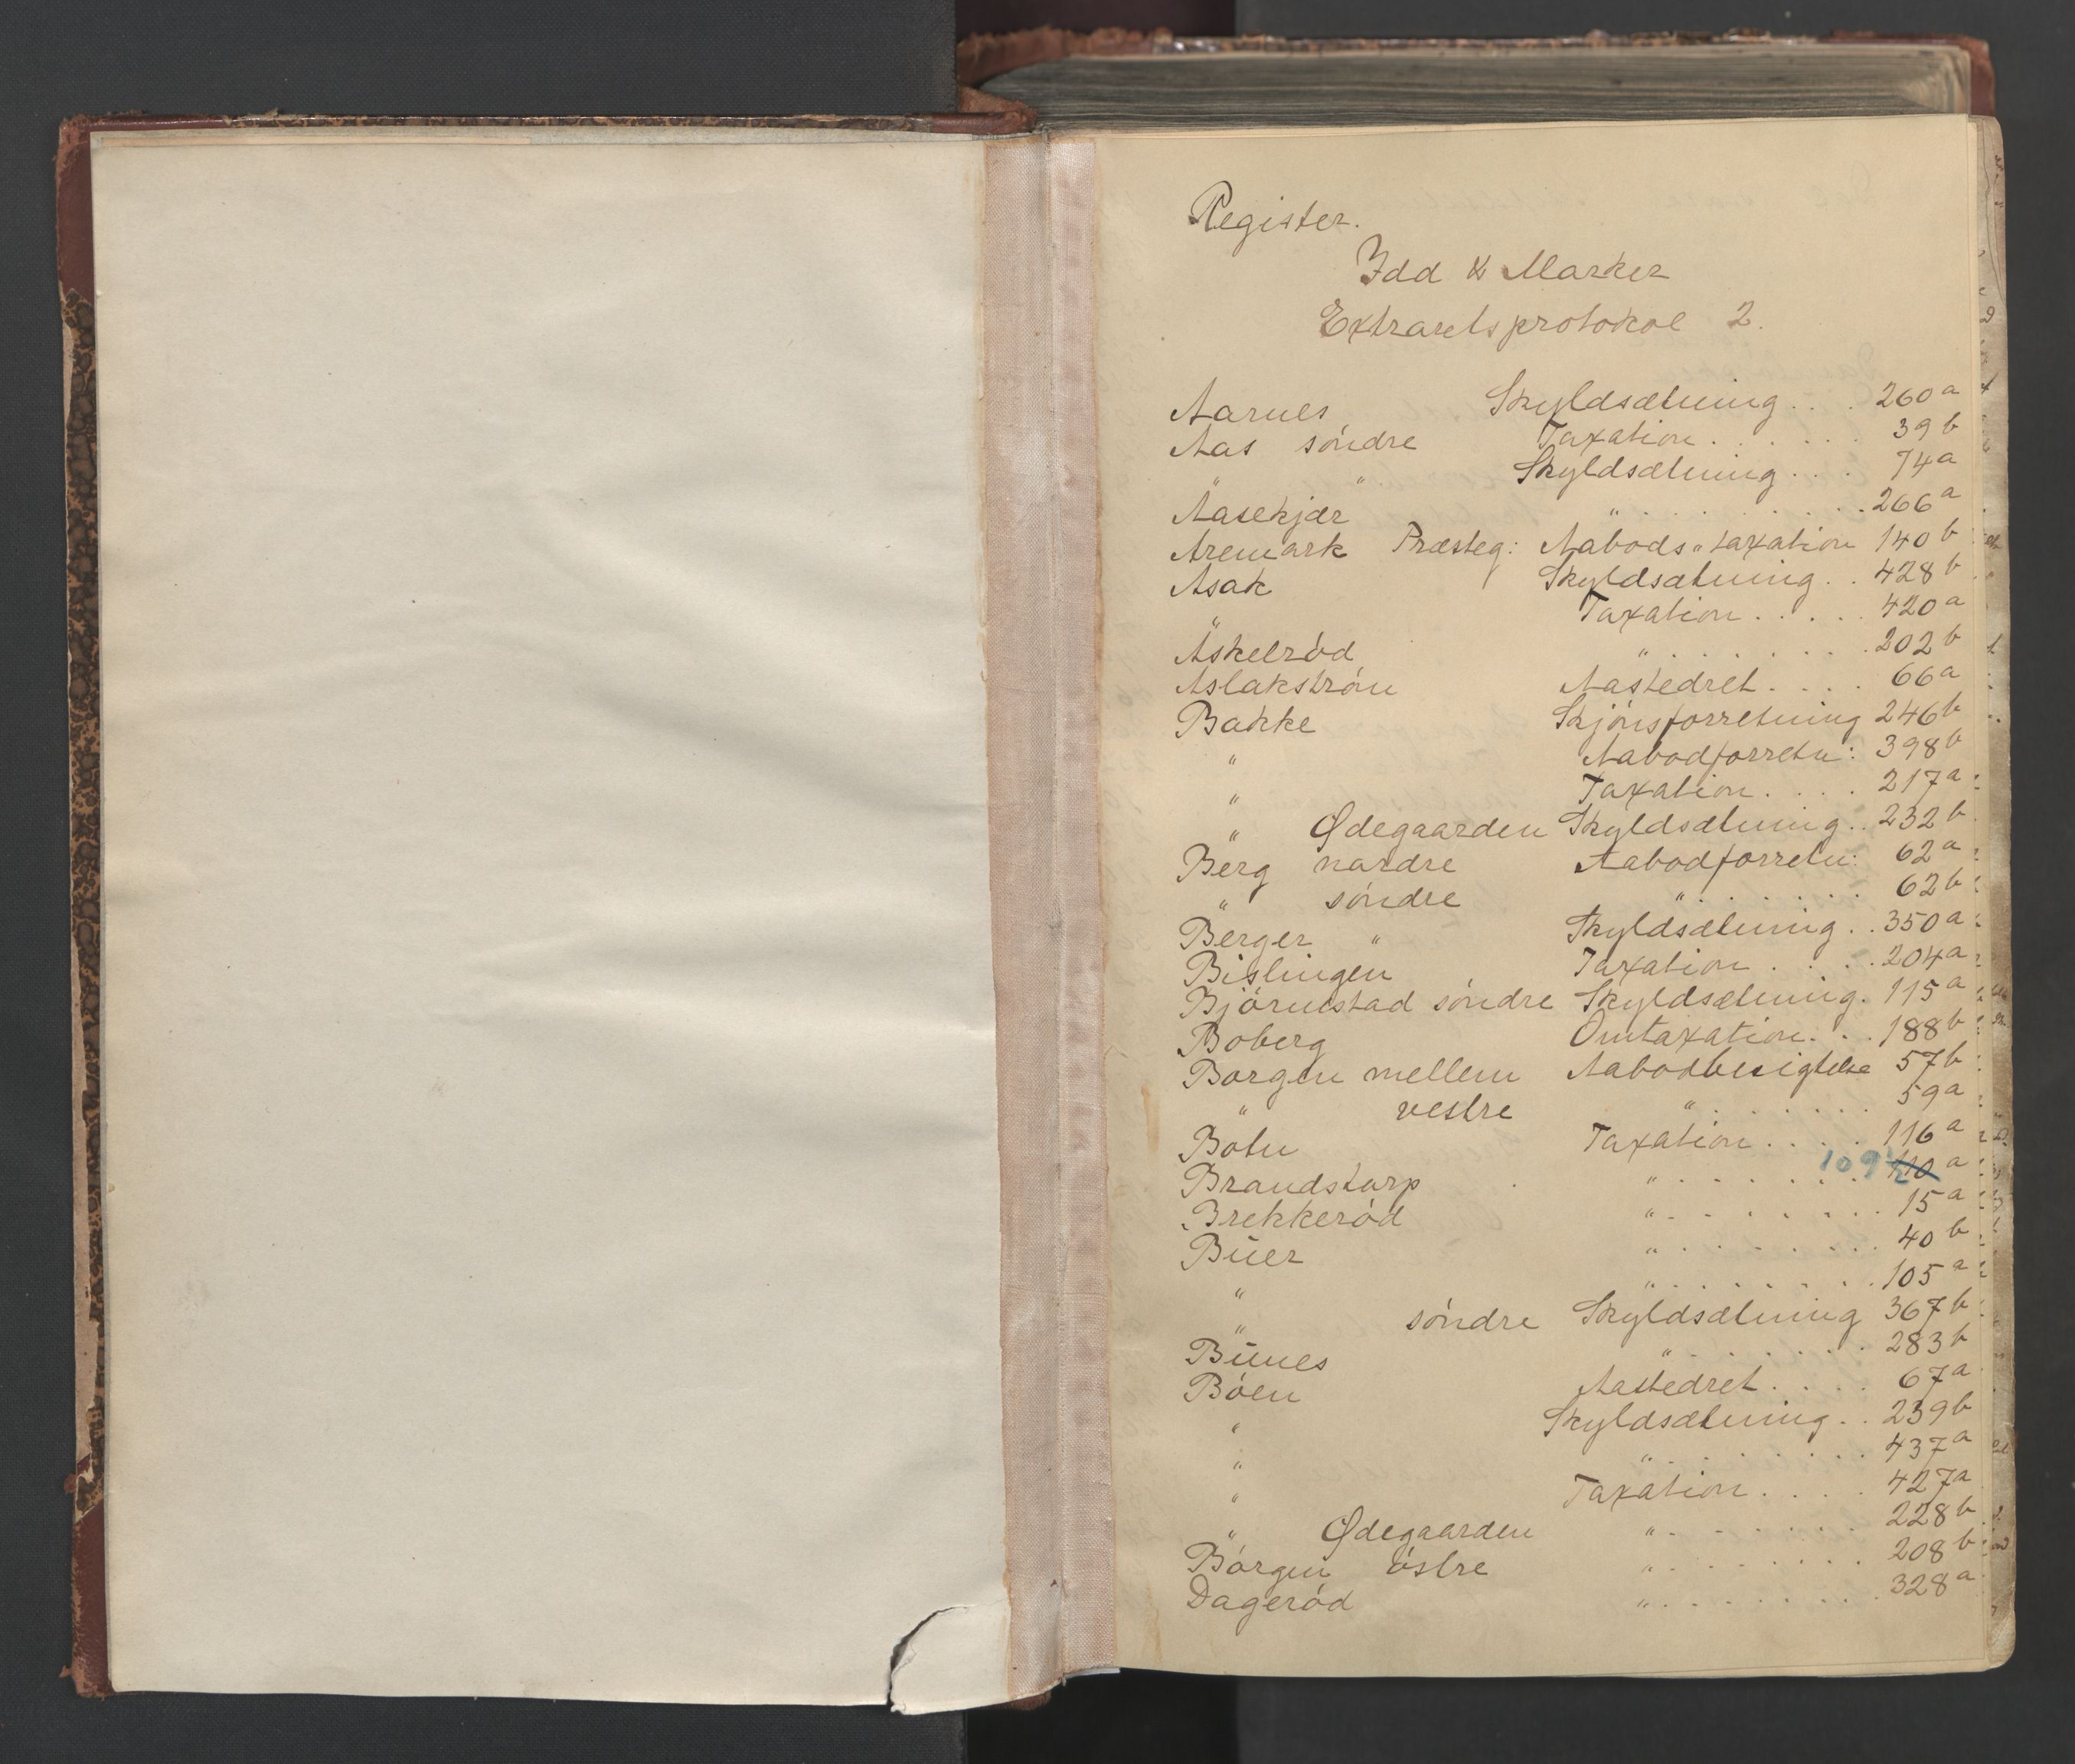 Register.
Idd & Marker
Extraretsprotokol 2.
Aarnes Skyldsætning . . . 260 a
Aas söndre Taxation . . . . . . 39 b
" " Skyldsætning . . . 74 a
Aasekjær " . . . . . . . . . 266 a
Aremark Præsteg: Aabods "taxation 140 b
Asak Skyldsætning . . 428 b
" Taxation . . . . . 420 a
Askelröd " . . . . . . . . 202 b
Aslakströn Aastedret . . . . 66 a
Bakke Skjönsforretning 246 b
" Aabodforretn: 398 b
" Taxation . . . . 217 a
" Ødegaarden Skyldsætning . . 232 b
Berg nordre Aabodforretn: 62 a
" söndre " . . . . . . . 62 b
Berger " Skyldsætning . . 350 a
Bislingen Taxation . . . . . 204 a
Björnestad söndre Skyldsætning . 115 a
Boberg Omtaxation . . . 188 b
Borgen mellem Aabodbesigtelse 57 b
" vestre " . . . . . . . 59 a
Botn Taxation . . . . 116 a
Brandstorp " . . . . . . . 109½ 110 a
Brekkeröd " . . . . . . . . 15 a
Buer " . . . . . . . . 40 b
" " . . . . . . . . 105 a
" söndre Skyldsætning 367 b
Bunes " . . . . . . . 283 b
Böen Aastedret . . . . 67 a
" Skyldsætning . . 239 b
" " . . . . . . . . 437 a
" Taxation . . . . 427 a
" Ødegaarden " . . . . . . . 228 b
Börgen östre " . . . . . . . 208 b
Dageröd " . . . . . . . . . 328 a